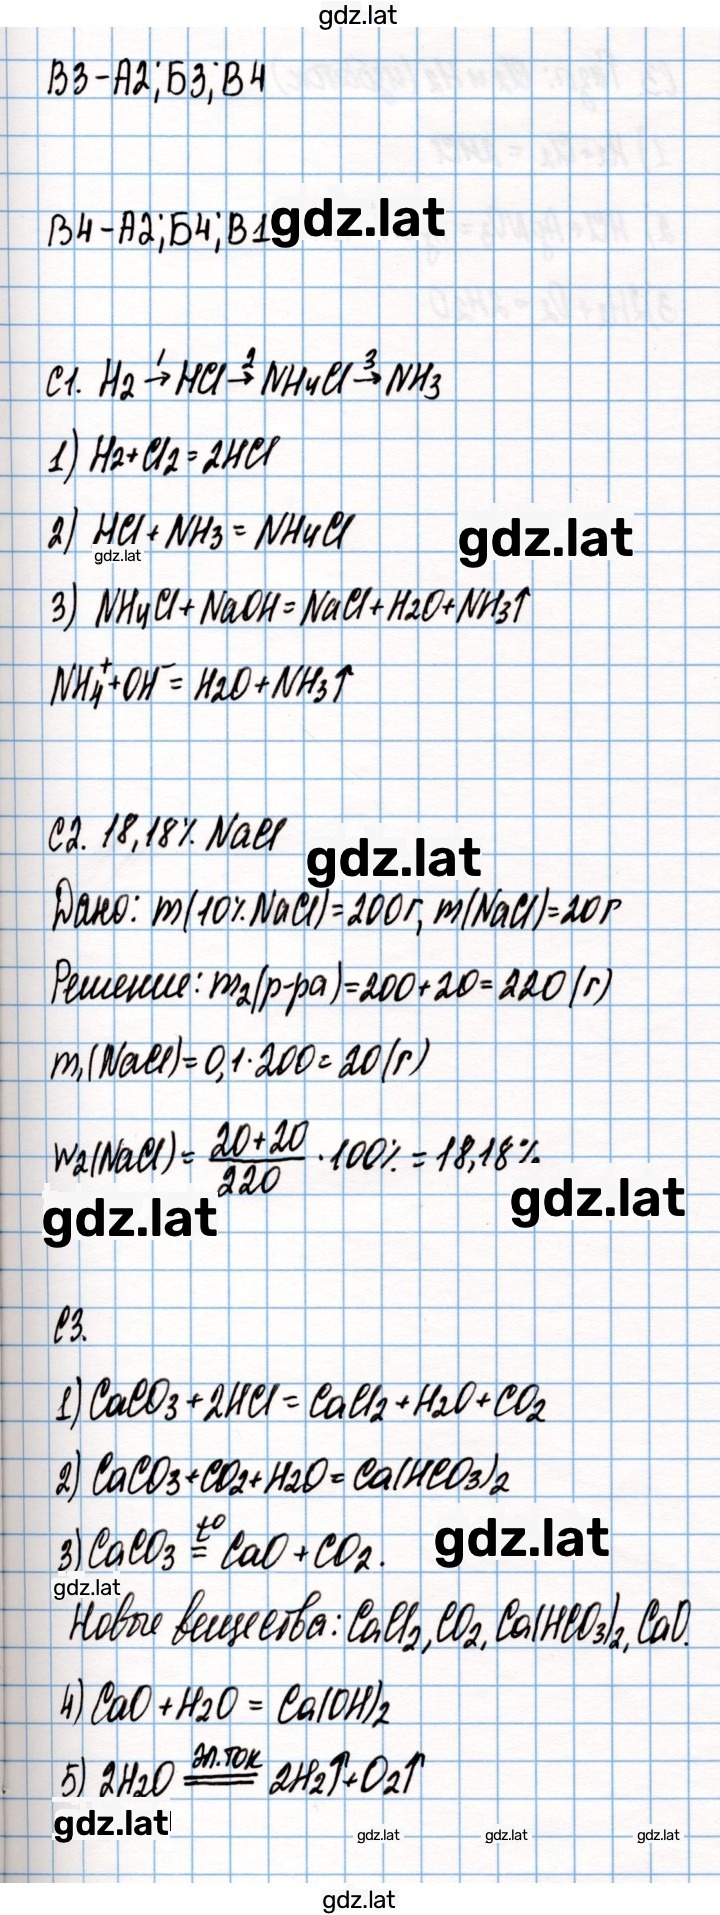 gdz.lat
В3-А2;Б3;В4
В4-А2;Б4;В1
gdz.lat
С1. H2 1→ HCl 2→ NH4Cl 3→ NH3
1) H2+Cl2=2HCl
2) HCl+NH3=NH4Cl
gdz.lat
gdz.lat
3) NH4Cl+NaOH=NaCl+H2O+NH3↑
NH4⁺+OH⁻=H2O+NH3↑
С2. 18,18% NaCl
gdz.lat
Дано: m(10% NaCl)=200г, m(NaCl)=20г
Решение: m2(р-ра)=200+20=220(г)
m1(NaCl)=0,1·200=20(г)
w2(NaCl)= 20+20/220 ·100%=18,18%
gdz.lat
gdz.lat
С3.
1) CaCO3+2HCl=CaCl2+H2O+CO2
2) CaCO3+CO2+H2O=Ca(HCO3)2
3) CaCO3 t0= CaO+CO2.
gdz.lat
gdz.lat
Новые вещества: CaCl2, CO2, Ca(HCO3)2, CaO.
4) CaO+H2O=Ca(OH)2
5) 2H2O эл.ток= 2H2↑+O2↑
gdz.lat
gdz.lat gdz.lat gdz.lat
gdz.lat